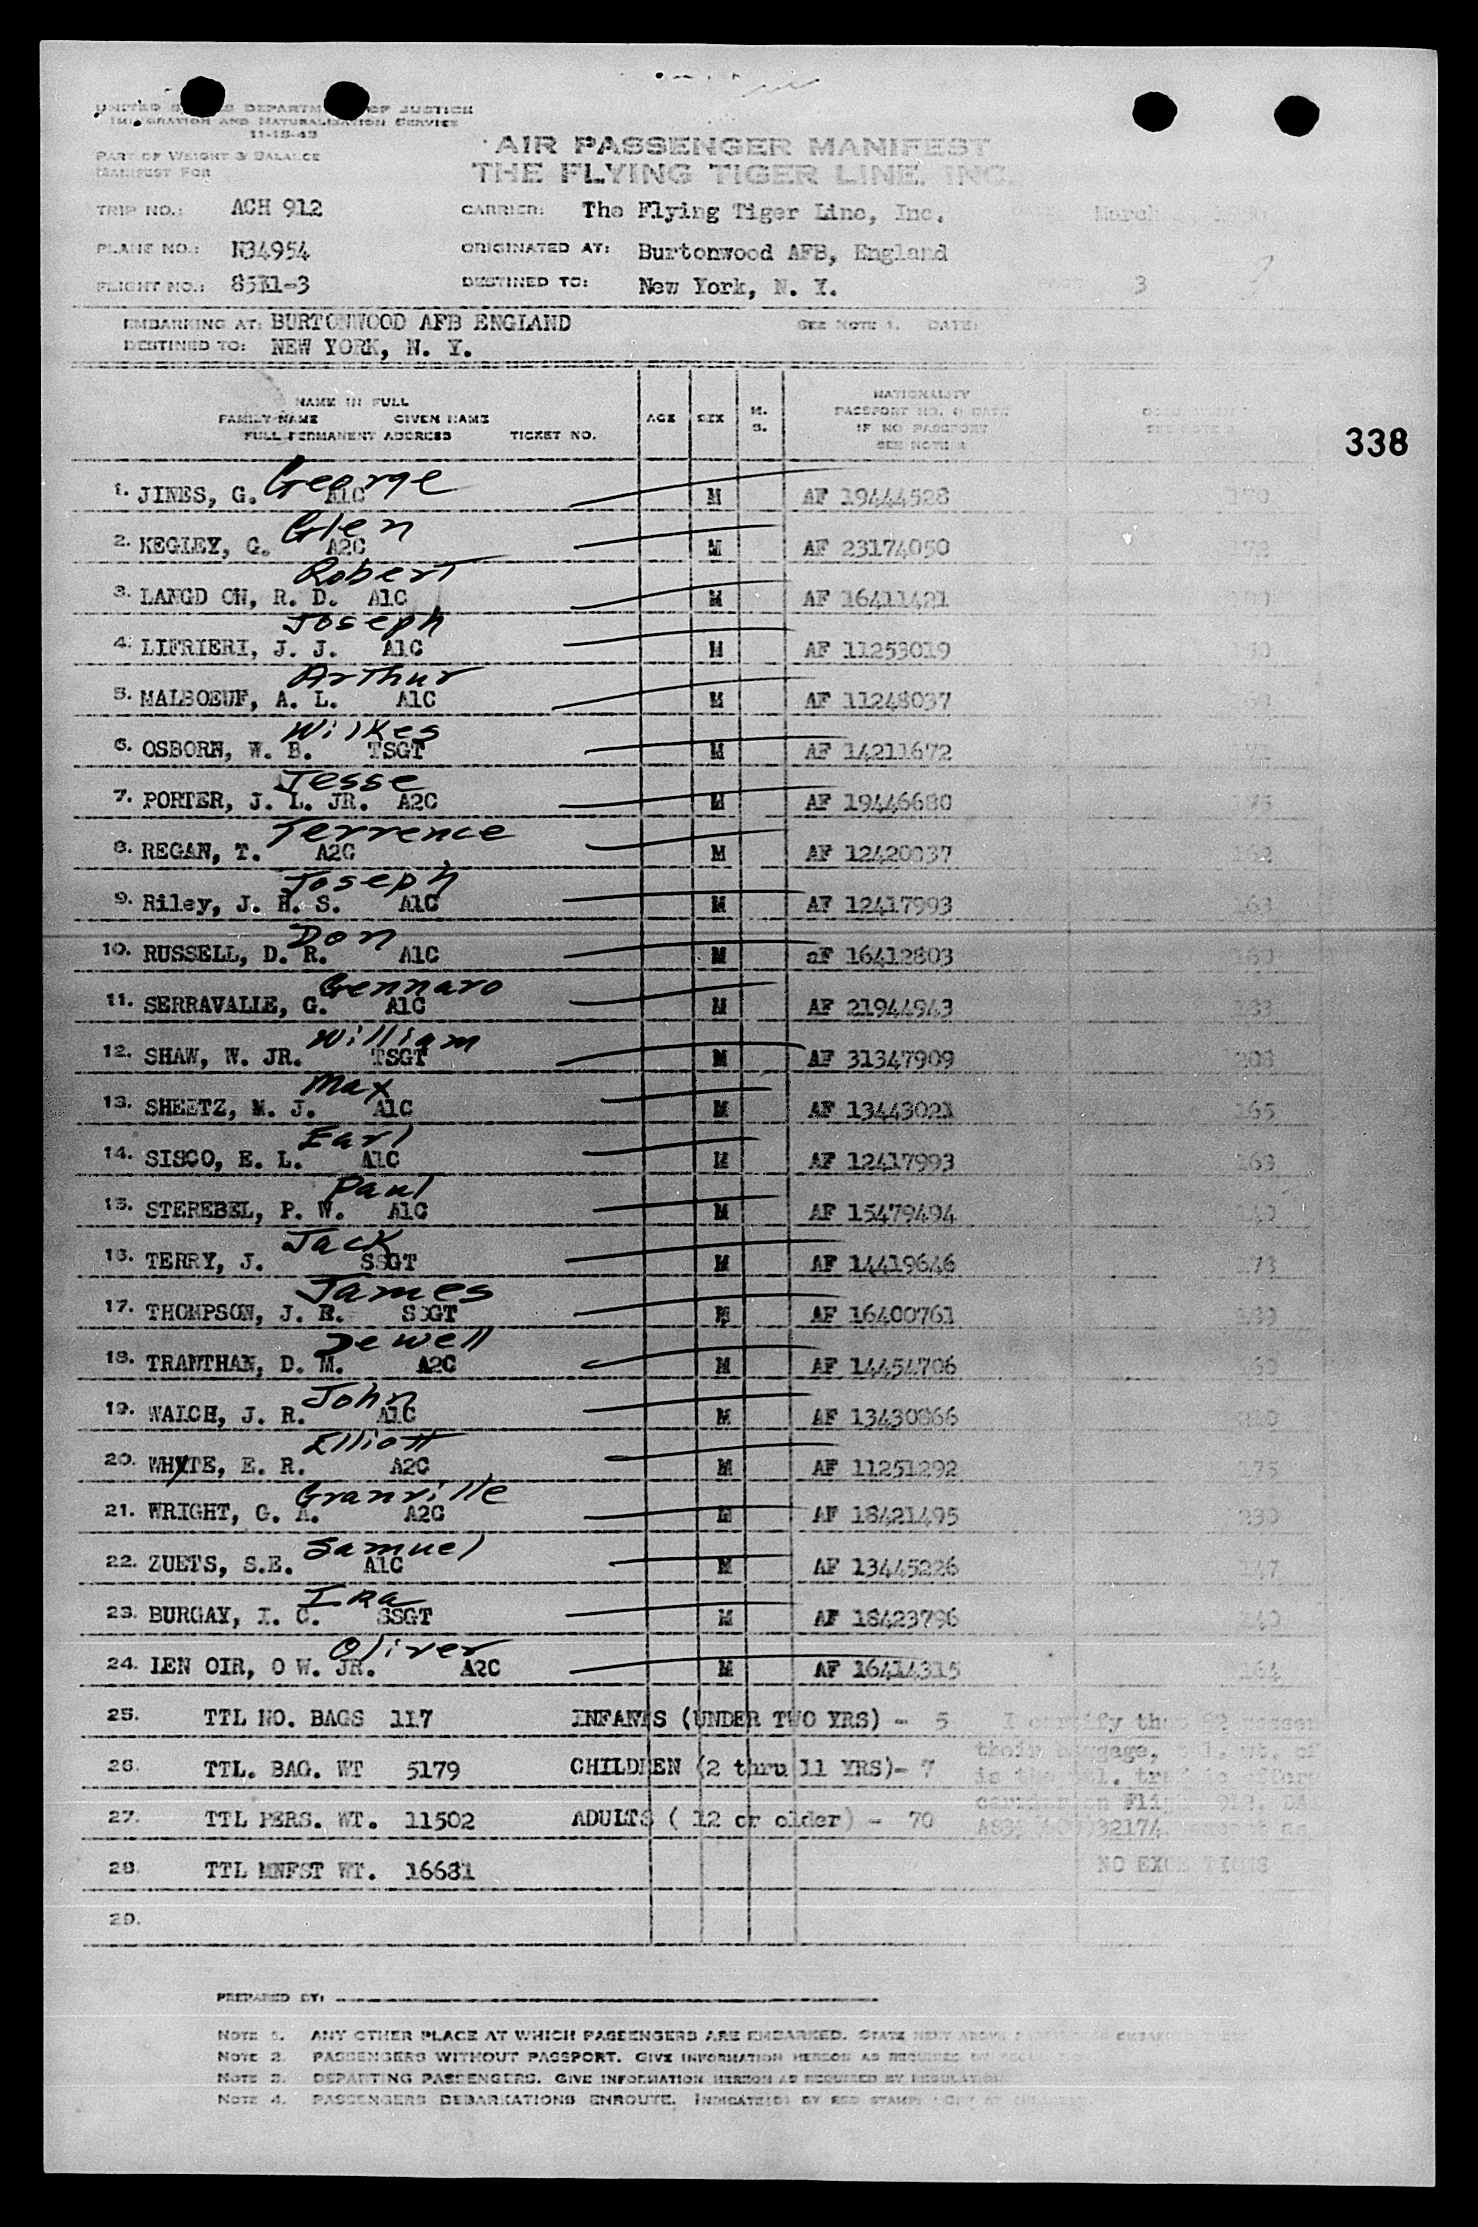 UNITED STATES DEPARTMENT OF JUSTICE
IMMIGRATION AND NATURALIZATION SERVICE
11-15-43
PART OF WEIGHT & BALANCE
MANIFEST FOR
AIR PASSENGER MANIFEST
THE FLYING TIGER LINE, INC.
TRIP NO.: ACH 912 CARRIER: The Flying Tiger Line, Inc. March
PLANE NO.: N34954 ORIGINATED AT: Burtonwood AFB, England
FLIGHT NO.: 85E1-3 DESTINED TO: New York, N. Y. PAGE 3
EMBARKING AT: BURTONWOOD AFB ENGLAND SEE NOTE 1. DATE:
DESTINED TO: NEW YORK, N. Y.
NAME IN FULL
FAMILY NAME GIVEN NAME
FULL PERMANENT ADDRESS TICKET NO.
AGE SEX M. S.
NATIONALITY
PASSPORT NO. & DATE
IF NO PASSPORT
SEE NOTE 2
338
George
1. JINES, G. A1C M AF 19444528 170
Glen
2. KEGLEY, G. A2C M AF 23174050 172
Robert
3. LANGD ON, R. D. A1C M AF 16411421
Joseph
4. LIFRIERI, J. J. A1C M AF 11253019
Arthur
5. MALBOEUF, A. L. A1C M AF 11248037
Wilkes
6. OSBORN, W. B. TSGT M AF 14211672
Jesse
7. PORTER, J. L. JR. A2C M AF 19446680 175
Terrence
8. REGAN, T. A2C M AF 12420037 162
Joseph
9. Riley, J. H. S. A1C M AF 12417993 163
Don
10. RUSSELL, D. R. A1C M aF 16412803 160
Gennaro
11. SERRAVALLE, G. A1C M AF 21944943 183
William
12. SHAW, W. JR. TSGT M AF 31347909 208
Max
13. SHEETZ, M. J. A1C M AF 13443021 165
Earl
14. SISCO, E. L. A1C M AF 12417993 163
Paul
15. STEREBEL, P. W. A1C M AF 15479494 149
Jack
16. TERRY, J. SSGT M AF 14419646 173
James
17. THOMPSON, J. R. SSGT M AF 16400761
Dewell
18. TRANTHAN, D. M. A2C M AF 14454706 160
John
19. WALCH, J. R. A1C M AF 13430866 210
Elliott
20. WHYTE, E. R. A2C M AF 11251292 175
Granville
21. WRIGHT, G. A. A2C M AF 18421495 230
Samuel
22. ZUETS, S.E. A1C M AF 13445226 147
Ira
23. BURGAY, I. C. SSGT M AF 18423796 140
Oliver
24. LEN OIR, O W. JR. A2C M AF 16414315 164
25. TTL NO. BAGS 117 INFANTS (UNDER TWO YRS) - 5 I certify that 82
their baggage,
26. TTL. BAG. WT 5179 CHILDREN (2 thru 11 YRS)- 7
27. TTL PERS. WT. 11502 ADULTS ( 12 or older) - 70
28. TTL MNFST WT. 16681 NO EXCEPTIONS
29.
PREPARED BY:
NOTE 1. ANY OTHER PLACE AT WHICH PASSENGERS ARE EMBARKED. STATE NEXT ABOVE
NOTE 2. PASSENGERS WITHOUT PASSPORT. GIVE INFORMATION HEREON AS REQUIRED BY
NOTE 3. DEPARTING PASSENGERS. GIVE INFORMATION HEREON AS REQUIRED BY REGULATIONS
NOTE 4. PASSENGERS DEBARKATIONS ENROUTE. INDICATE(D) BY RED STAMP